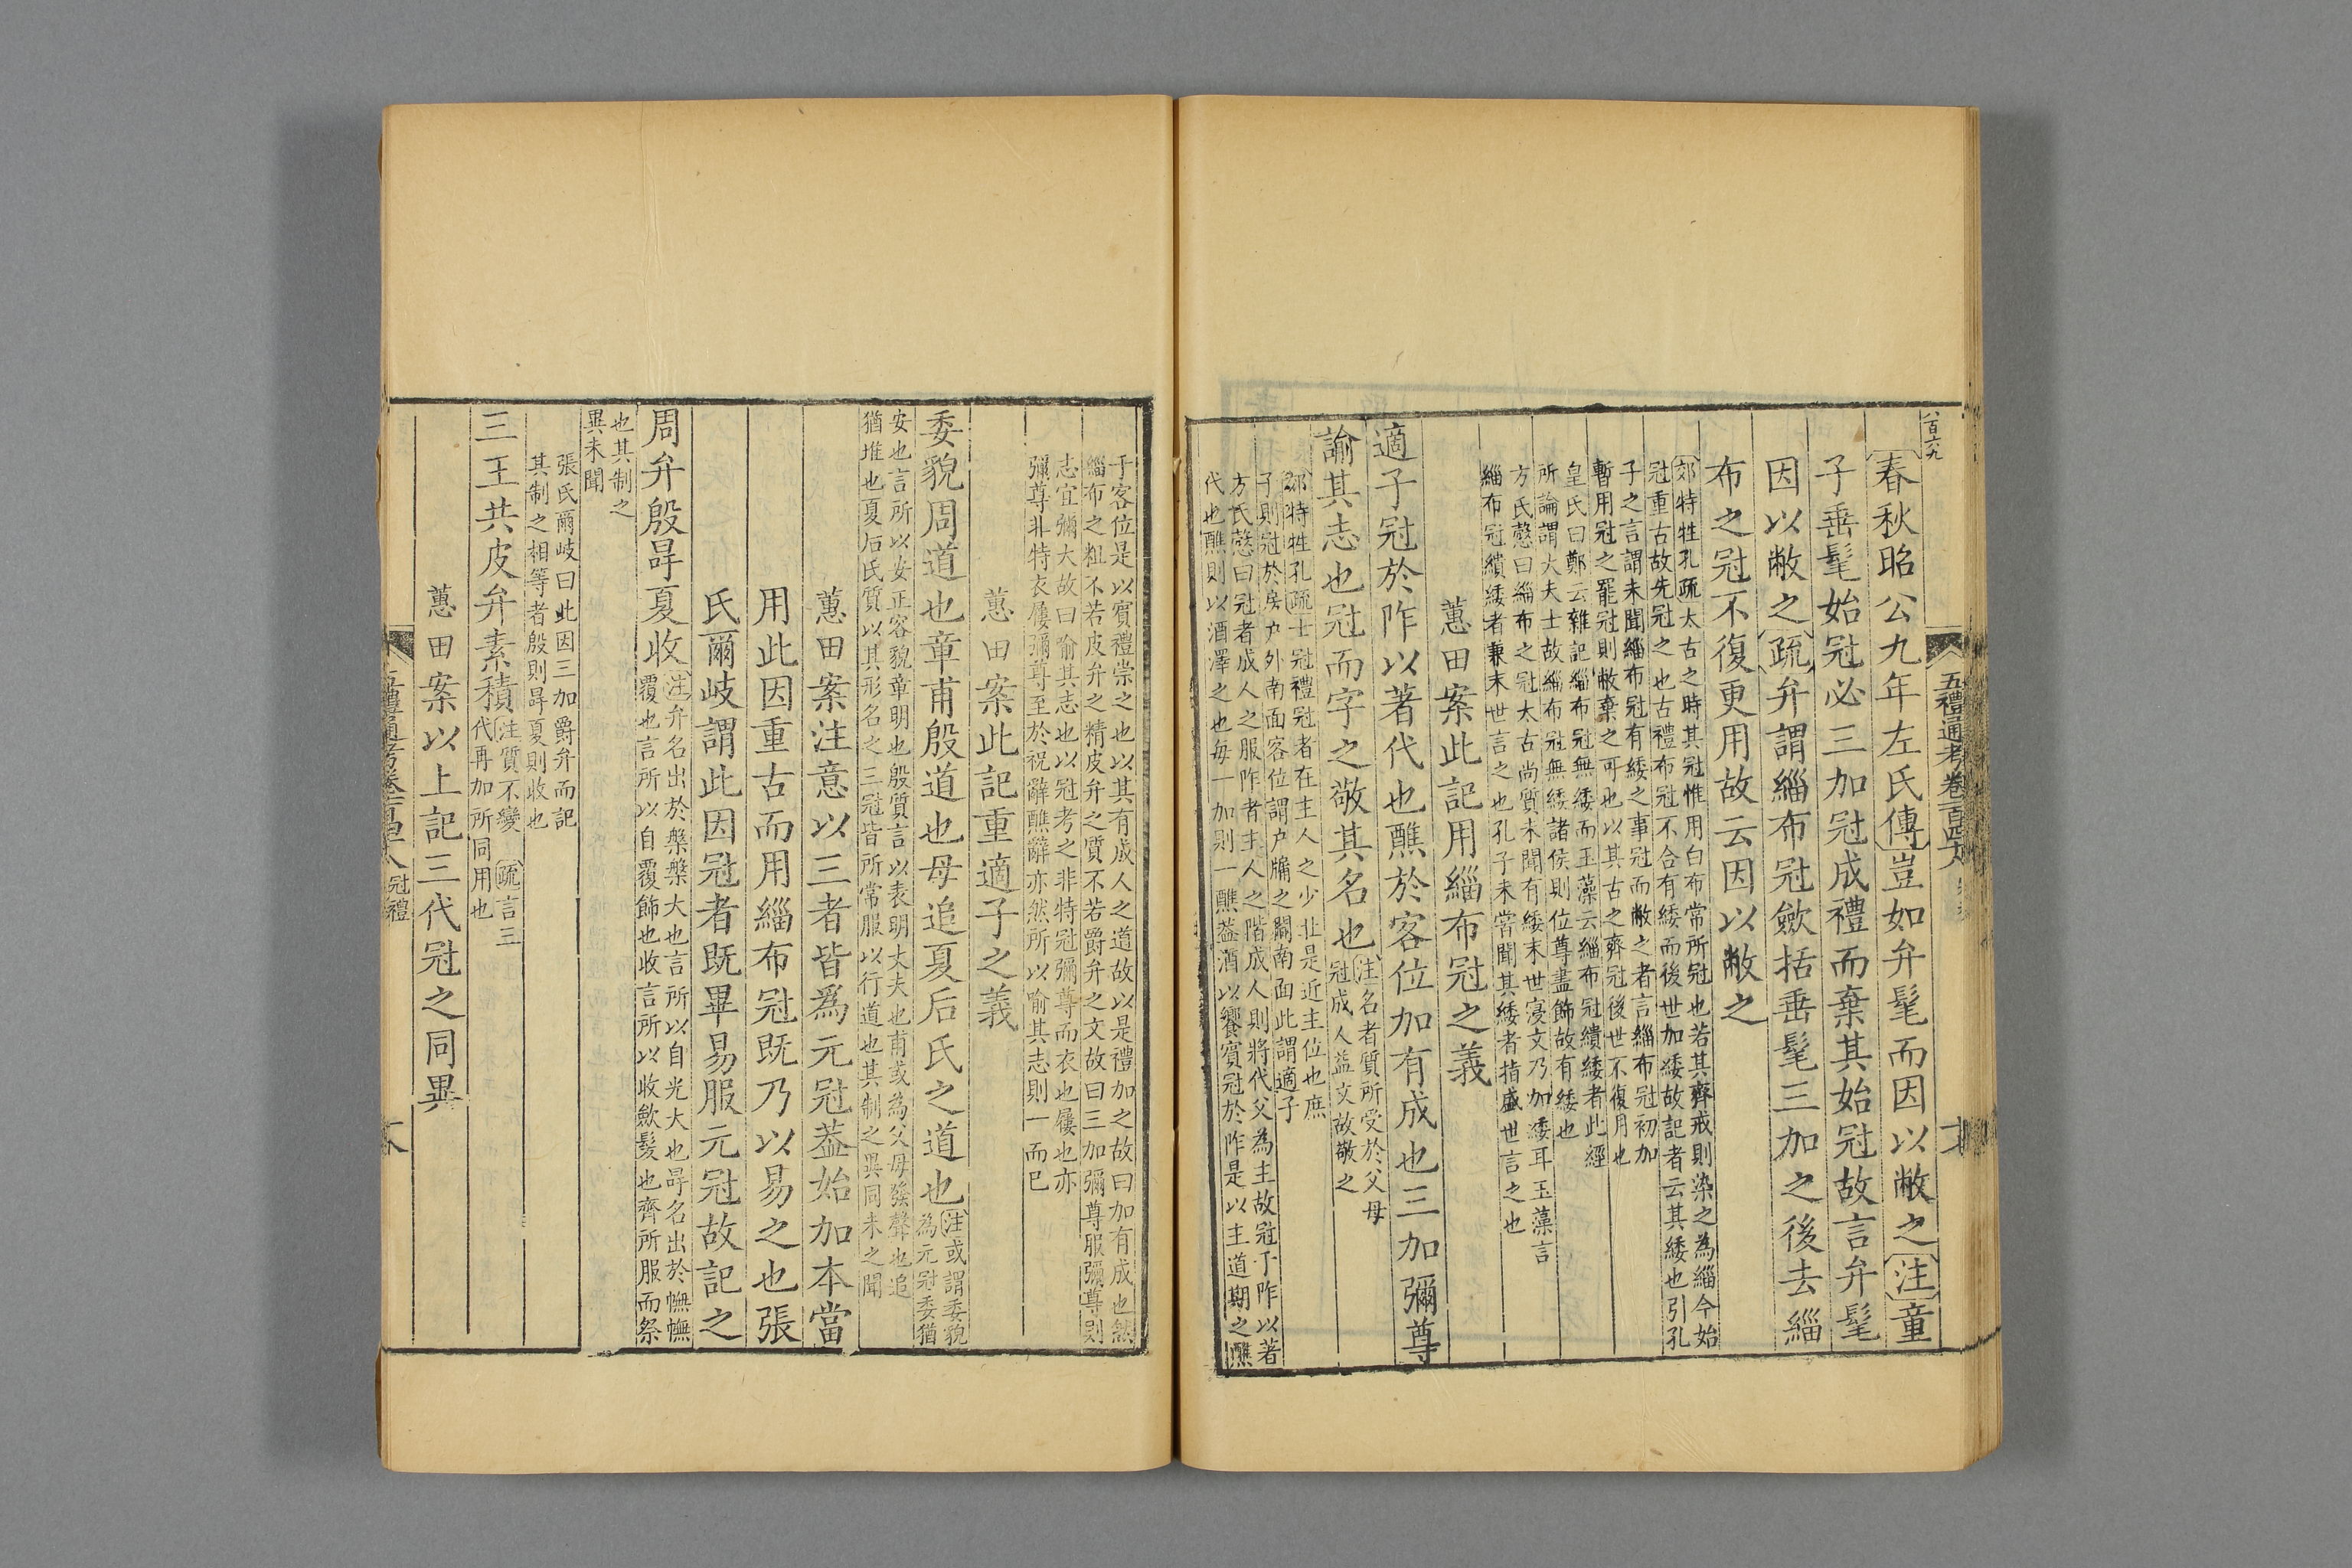 五禮通考卷一百四十八
春秋昭公九年左氏傳豈如弁髦而因以敝之注童
子垂髦始冠必三加冠成禮而棄其始冠故言弁髦
因以敝之疏弁謂緇布冠斂括垂髦三加之後去緇
布之冠不復更用故云因以敝之
郊特牲孔疏太古之時其冠惟用白布常所冠也若其齊戒則染之為緇今始
冠重古故先冠之也古禮布冠不合有緌而後世加緌故記者云其緌也引孔
子之言謂未聞緇布冠有緌之事冠而敝之者言緇布冠初加
暫用冠之罷冠則敝棄之可也以其古之齊冠後世不復用也
皇氏曰鄭云雜記緇布冠無緌而玉藻云緇布冠繢緌者此經
所論謂大夫士故緇布冠無緌諸侯則位尊盡飾故有緌也
方氏慤曰緇布之冠太古尚質未聞有緌末世寖文乃加緌耳玉藻言
緇布冠繢緌者兼末世言之也孔子未嘗聞其緌者指盛世言之也
蕙田案此記用緇布冠之義
適子冠於阼以著代也醮於客位加有成也三加彌尊
諭其志也冠而字之敬其名也注名者質所受於父母
冠成人益文故敬之
郊特牲孔疏士冠禮冠者在主人之少北是近主位也庶
子則冠於房户外南面客位謂户牖之閒南面此謂適子
方氏慤曰冠者成人之服阼者主人之階成人則將代父為主故冠于阼以著
代也醮則以酒澤之也每一加則一醮葢酒以饗賓冠於阼是以主道期之醮
于客位是以賓禮崇之也以其有成人之道故以是禮加之故曰加有成也然
緇布之粗不若皮弁之精皮弁之質不若爵弁之文故曰三加彌尊服彌尊則
志宜彌大故曰喻其志也以冠考之非特冠彌尊而衣也屨也亦
彌尊非特衣屨彌尊至於祝辭醮辭亦然所以喻其志則一而已
蕙田案此記重適子之義
委貌周道也章甫殷道也母追夏后氏之道也注或謂委貌
為元冠委猶
安也言所以安正容貌章明也殷質言以表明丈夫也甫或為父母發聲也追
猶堆也夏后氏質以其形名之三冠皆所常服以行道也其制之異同未之聞
蕙田案注意以三者皆爲元冠葢始加本當
用此因重古而用緇布冠既乃以易之也張
氏爾岐謂此因冠者既畢易服元冠故記之
周弁殷冔夏收注弁名出於槃槃大也言所以自光大也冔名出於幠幠
覆也言所以自覆飾也收言所以收斂髮也齊所服而祭
也其制之
異未聞
張氏爾岐曰此因三加爵弁而記
其制之相等者殷則冔夏則收也
三王共皮弁素積注質不變疏言三
代再加所同用也
蕙田案以上記三代冠之同異
五禮通考卷一百四十八冠禮